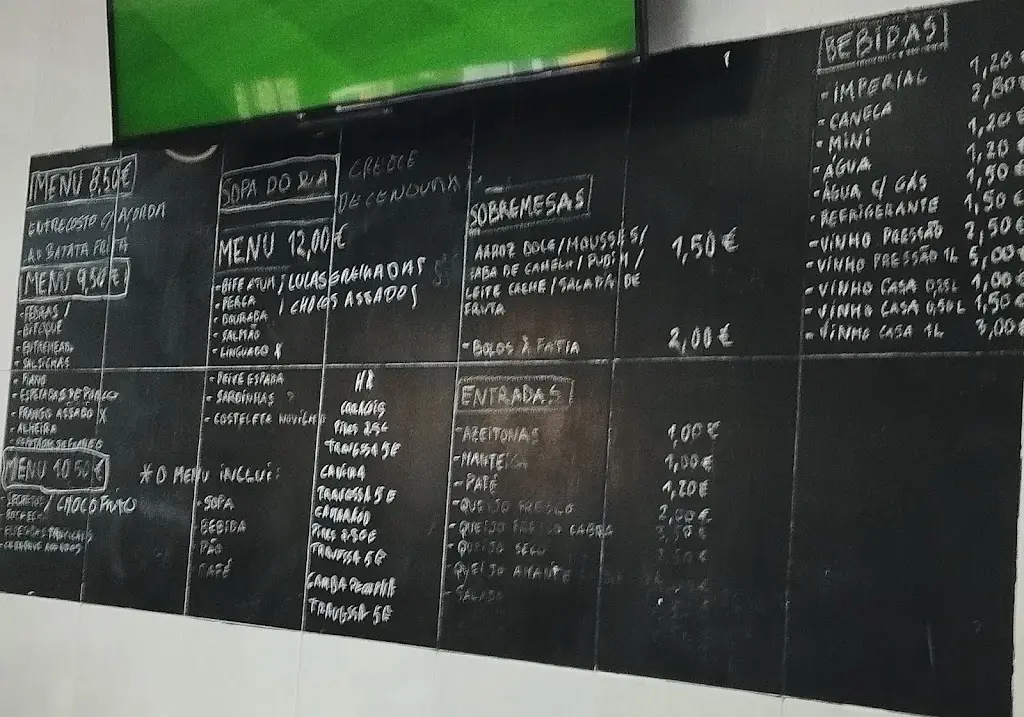 MENU 8,50€
ENTRECOSTO C/ AÇORDA
OU BATATA FRITA
MENU 9,50€
- FEBRAS /
- BITOQUE
- ENTREMEADA
- SALSICHAS
- PIANO
- ESPETADAS DE PORCO
- FRANGO ASSADO X
- ALHEIRA
MENU 10,50€
/ CHOCO FRITO
SOPA DO DIA
CREME
DE CENOURA
MENU 12,00€
- BIFE ATUM / LULAS GRELHADAS
- PERCA / CHOCOS ASSADOS
- DOURADA
- SALMÃO
- LINGUADO X
- PEIXE ESPADA
- SARDINHAS
- COSTELETA NOVILHO
* O MENU INCLUI:
- SOPA
BEBIDA
PÃO
CAFÉ
HÁ
CARACÓIS
PIRES 2,5€
TRAVESSA 5€
TRAVESSA 5€
CAMARÃO
PIRES 2,50€
TRAVESSA 5€
TRAVESSA 5€
SOBREMESAS
ARROZ DOCE / MOUSSES /
BABA DE CAMELO / PUDIM /
LEITE CREME / SALADA DE
FRUTA
1,50€
- BOLOS À FATIA 2,00€
ENTRADAS
- AZEITONAS 1,00€
- MANTEIGA 1,00€
- PATÉ 1,20€
- QUEIJO FRESCO 2,00€
- QUEIJO FRESCO CABRA
- QUEIJO SECO
- QUEIJO AMANTE
- SALADA
BEBIDAS
- IMPERIAL 1,20€
- CANECA 2,80€
- MINI 1,20€
- ÁGUA 1,20€
- ÁGUA C/ GÁS 1,50€
- REFRIGERANTE 1,50€
- VINHO PRESSÃO 2,50€
- VINHO PRESSÃO 1L 5,00€
- VINHO CASA 0,25L 1,00€
- VINHO CASA 0,50L 1,50€
- VINHO CASA 1L 3,00€